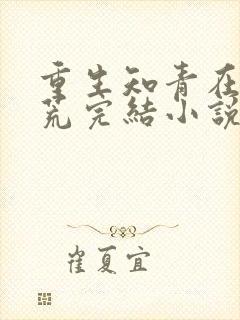 重生知青在
荒完結小說
崔夏宜